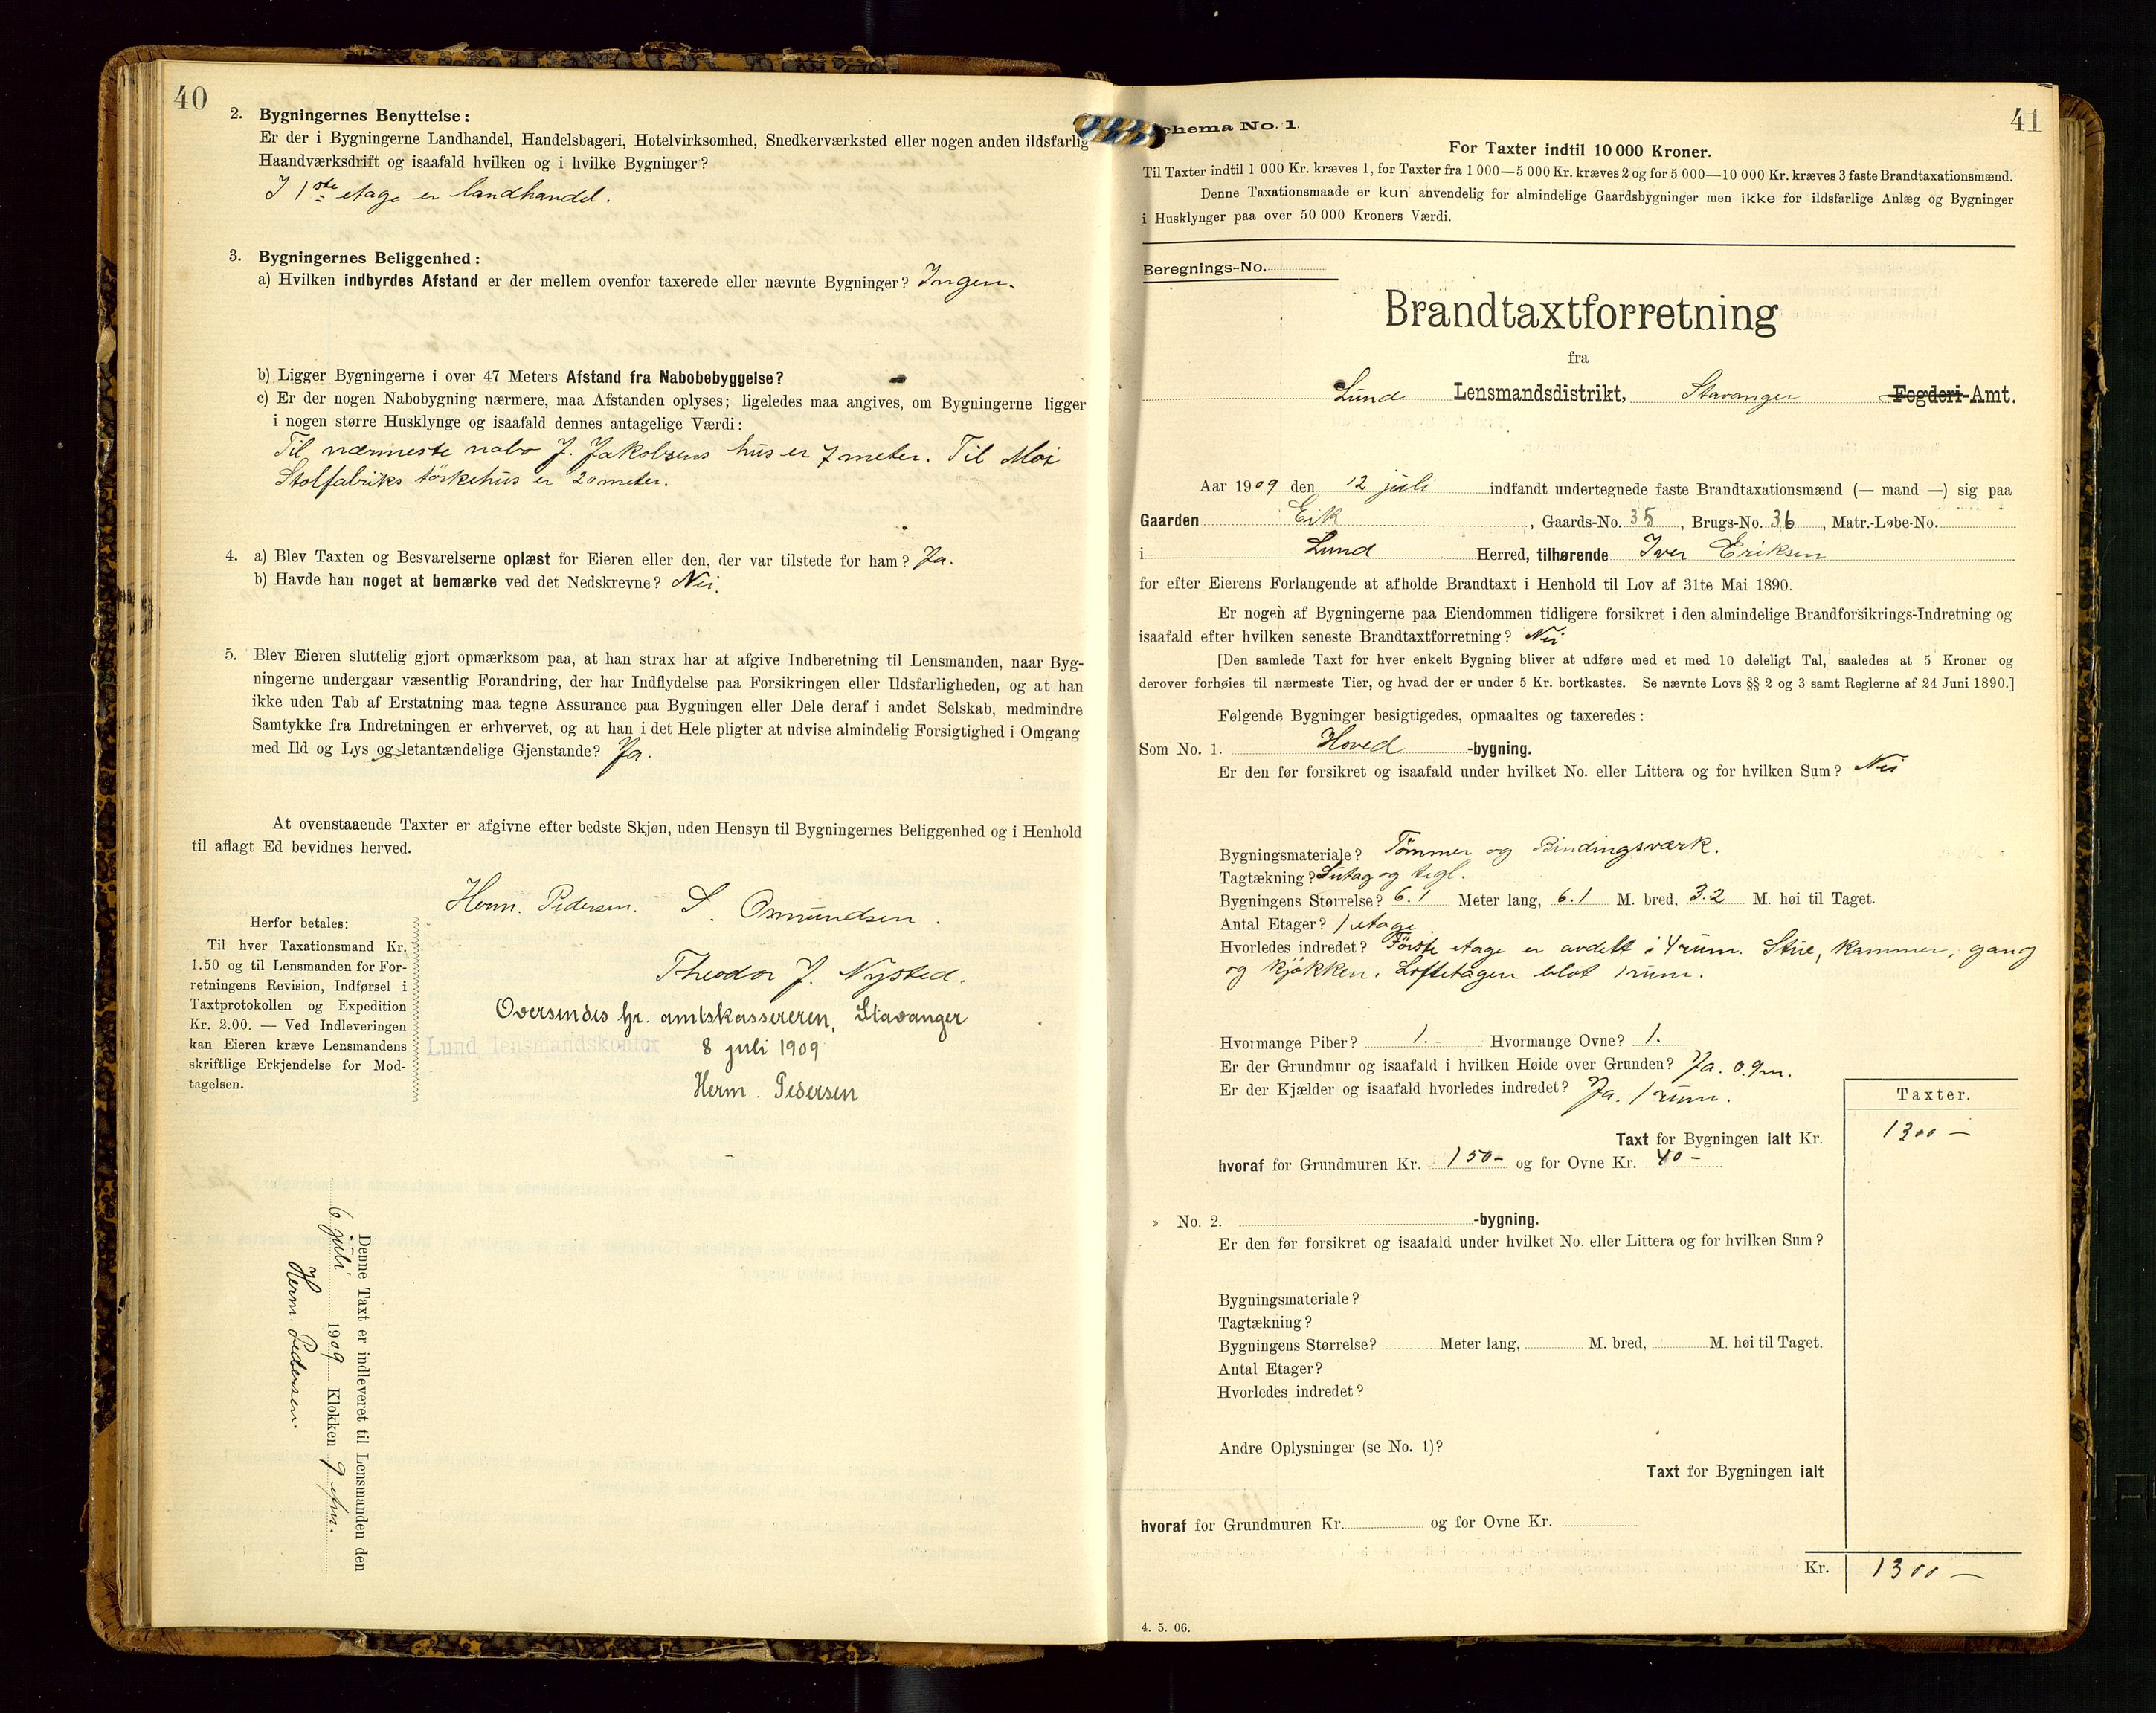 40
2. Bygningernes Benyttelse:
Er der i Bygningerne Landhandel, Handelsbageri, Hotelvirksomhed, Snedkerværksted eller nogen anden ildsfarlig
Haandværksdrift og isaafald hvilken og i hvilke Bygninger?
I 1ste etage er landhandel.
3. Bygningernes Beliggenhed:
a) Hvilken indbyrdes Afstand er der mellem ovenfor taxerede eller nævnte Bygninger? Ingen.
b) Ligger Bygningerne i over 47 Meters Afstand fra Nabobebyggelse? -
c) Er der nogen Nabobygning nærmere, maa Afstanden oplyses; ligeledes maa angives, om Bygningerne ligger
i nogen større Husklynge og isaafald dennes antagelige Værdi:
Til nærmeste nabo J. Jakobsens hus er 7 meter. Til Moi
Stolfabriks tørkehus er 20 meter.
4. a) Blev Taxten og Besvarelserne oplæst for Eieren eller den, der var tilstede for ham? Ja.
b) Havde han noget at bemærke ved det Nedskrevne? Nei.
5. Blev Eieren sluttelig gjort opmærksom paa, at han strax har at afgive Indberetning til Lensmanden, naar Byg-
ningerne undergaar væsentlig Forandring, der har Indflydelse paa Forsikringen eller Ildsfarligheden, og at han
ikke uden Tab af Erstatning maa tegne Assurance paa Bygningen eller Dele deraf i andet Selskab, medmindre
Samtykke fra Indretningen er erhvervet, og at han i det Hele pligter at udvise almindelig Forsigtighed i Omgang
med Ild og Lys og letantændelige Gjenstande? Ja.
At ovenstaaende Taxter er afgivne efter bedste Skjøn, uden Hensyn til Bygningernes Beliggenhed og i Henhold
til aflagt Ed bevidnes herved.
Herm. Pedersen. S. Osmundsen.
Theodor J. Nysted.
Herfor betales:
Til hver Taxationsmand Kr.
1.50 og til Lensmanden for For-
retningens Revision, Indførsel i
Taxtprotokollen og Expedition
Kr. 2.00. — Ved Indleveringen
kan Eieren kræve Lensmandens
skriftlige Erkjendelse for Mod-
tagelsen.
Oversendes hr. amtskassereren, Stavanger
Lund lensmandskontor 8 juli 1909
Herm. Pedersen
Denne Taxt er indleveret til Lensmanden den
6 juli 1909 Klokken 9 efm.
Herm. Pedersen
41
Schema No. 1.
For Taxter indtil 10 000 Kroner.
Til Taxter indtil 1 000 Kr. kræves 1, for Taxter fra 1 000—5 000 Kr. kræves 2 og for 5 000—10 000 Kr. kræves 3 faste Brandtaxationsmænd.
Denne Taxationsmaade er kun anvendelig for almindelige Gaardsbygninger men ikke for ildsfarlige Anlæg og Bygninger
i Husklynger paa over 50 000 Kroners Værdi.
Beregnings-No.
Brandtaxtforretning
fra
Lund Lensmandsdistrikt, Stavanger Fogderi-Amt.
Aar 1909 den 12 juli indfandt undertegnede faste Brandtaxationsmænd (— mand —) sig paa
Gaarden Eik, Gaards-No. 35, Brugs-No. 36, Matr.-Løbe-No.
i Lund Herred, tilhørende Iver Eriksen
for efter Eierens Forlangende at afholde Brandtaxt i Henhold til Lov af 31te Mai 1890.
Er nogen af Bygningerne paa Eiendommen tidligere forsikret i den almindelige Brandforsikrings-Indretning og
isaafald efter hvilken seneste Brandtaxtforretning? Nei
[Den samlede Taxt for hver enkelt Bygning bliver at udføre med et med 10 deleligt Tal, saaledes at 5 Kroner og
derover forhøies til nærmeste Tier, og hvad der er under 5 Kr. bortkastes. Se nævnte Lovs §§ 2 og 3 samt Reglerne af 24 Juni 1890.]
Følgende Bygninger besigtigedes, opmaaltes og taxeredes:
Som No. 1. Hoved -bygning.
Er den før forsikret og isaafald under hvilket No. eller Littera og for hvilken Sum? Nei
Bygningsmateriale? Tømmer og Bindingsværk.
Tagtækning? Sutag og tegl.
Bygningens Størrelse? 6.1 Meter lang, 6.1 M. bred, 3.2 M. høi til Taget.
Antal Etager? 1 etage.
Hvorledes indredet? Første etage er avdelt i 4 rum. Stue, kammer, gang
og kjøkken. Loftetagen blot 1 rum.
Hvormange Piber? 1. Hvormange Ovne? 1.
Er der Grundmur og isaafald i hvilken Høide over Grunden? Ja. 0.9m.
Er der Kjælder og isaafald hvorledes indredet? Ja. 1 rum.
Taxter.
Taxt for Bygningen ialt Kr. 1300 —
hvoraf for Grundmuren Kr. 150- og for Ovne Kr. 40 -
» No. 2. -bygning.
Er den før forsikret og isaafald under hvilket No. eller Littera og for hvilken Sum?
Bygningsmateriale?
Tagtækning?
Bygningens Størrelse? Meter lang, M. bred, M. høi til Taget.
Antal Etager?
Hvorledes indredet?
Andre Oplysninger (se No. 1)?
Taxt for Bygningen ialt
hvoraf for Grundmuren Kr. og for Ovne Kr.
Kr. 1300 —
4. 5. 06.